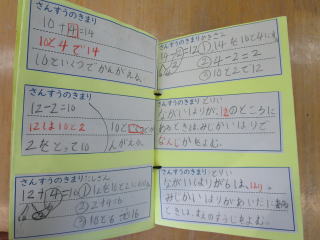 さんすうのきまり
10+4=14
10と4で14
10といくつでかんがえる。
さんすうのきまり
12-2=10
12は10と2
2をとって10
10と
んがえる
さんすうのきまりたしざん
12+4=16
①12を10と2に
②2+4=6
③10と6で16
さんすうのきまりひきざん
14-2=12
①14を10と4に
②4-2=2
③10と2で12
さんすうのきまりとけい
ながいはりが、12のところに
あるときはみじかいはりで
なんじかをよむ。
さんすうのきまりとけい
ながいはりが6は、はん。
みじかいはりがあいだに
ときは、まえのすうじをよむ。